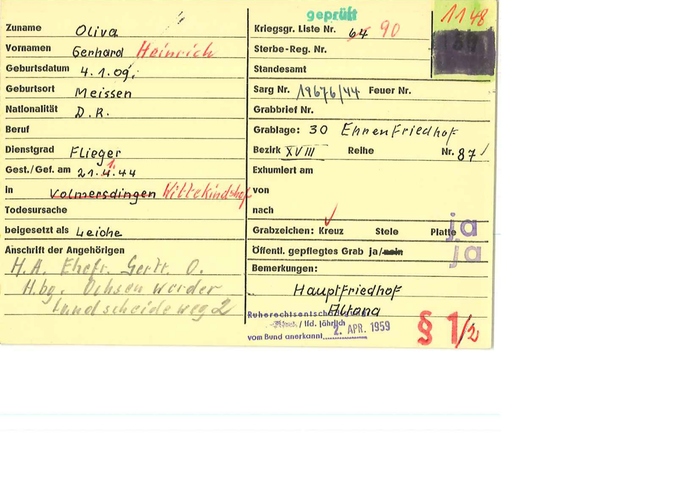 geprüft
1148
Zuname Oliva
Vornamen Gerhard Heinrich
Geburtsdatum 4.1.09.
Geburtsort Meissen
Nationalität D.R.
Beruf
Dienstgrad Flieger
Gest./Gef. am 21.4.44 1.
In Volmersdingen Wittekindshof
Todesursache
beigesetzt als Leiche
Anschrift der Angehörigen
H.A. Ehefr. Gertr. O.
H.bg. Ochsenwerder
Landscheideweg 2
Kriegsgr. Liste Nr. 64 90
Sterbe-Reg. Nr.
Standesamt
Sarg Nr. 19676/44 Feuer Nr.
Grabbrief Nr.
Grablage: 30 Ehrenfriedhof
Bezirk XVIII Reihe Nr. 87
Exhumiert am
von
nach
Grabzeichen: Kreuz Stele Platte ja
Öffentl. gepflegtes Grab ja/nein ja
Bemerkungen:
Hauptfriedhof
Altona
Ruherechtsentsch
/ lfd. jährlich
vom Bund anerkannt 2. APR. 1959
§ 1/2